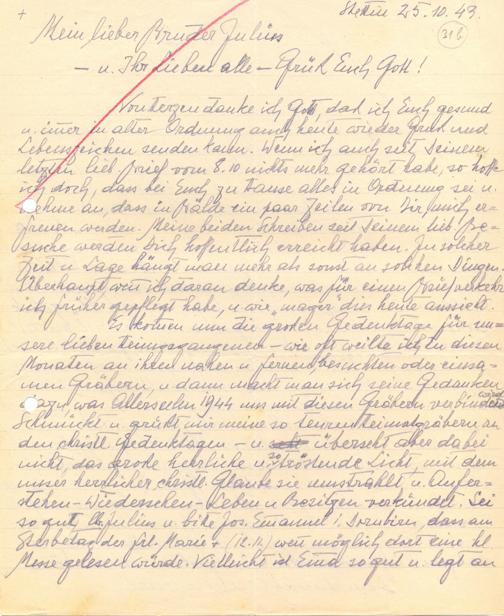 +
Stettin 25.10.43.
316
Mein lieber Bruder Julius
- u. Ihr Lieben alle - Grüß Euch Gott!
Von Herzen danke ich Gott, daß ich Euch gesund
u. immer in alter Ordnung auch heute wieder Gruß und
Lebenszeichen senden kann. Wenn ich auch seit Deinem
letzten lieb Brief vom 8.10 nichts mehr gehört habe, so hoffe
ich doch, dass bei Euch zu Hause alles in Ordnung sei u.
nehme an, dass in Bälde ein paar Zeilen von Dir mich er-
freuen werden. Meine beiden Schreiben seit Deinem lieb Be-
suche werden Dich hoffentlich erreicht haben. In solcher
Zeit u Lage hängt man mehr als sonst an solchen Dingen.
Überhaupt wenn ich daran denke, was für einen Briefverkehr
ich früher gepflegt habe, u. wie "mager" dies heute aussieht.
Es kommen nun die großen Gedenktage für un-
sere lieben Heimgegangenen - wie oft weilte ich in diesen
Monaten an ihren nahen u fernen besuchten oder einsa-
men Gräbern, u dann macht man sich seine Gedanken
dazu, was Allerseeln 1944 uns mit diesen Gräbern verbindet.
Schmückt u grüßt mir meine so teuren Heimatgräber an
den christl Gedenktagen - u. überseht aber dabei
nicht, das große herrliche u. so tröstende Licht, mit dem
unser herrlicher christl. Glaube sie umstrahlt, u. Aufer-
stehen - Wiedersehen - Leben u Besitzen verkündet. Sei
so gut, Julius u. bitte Jos. Emanuel i. Dornbirn, dass am
Sterbetag der frl. Marie + (12.11.) wenn möglich dort eine hl
Messe gelesen würde. Vielleicht ist Erna so gut u. legt an